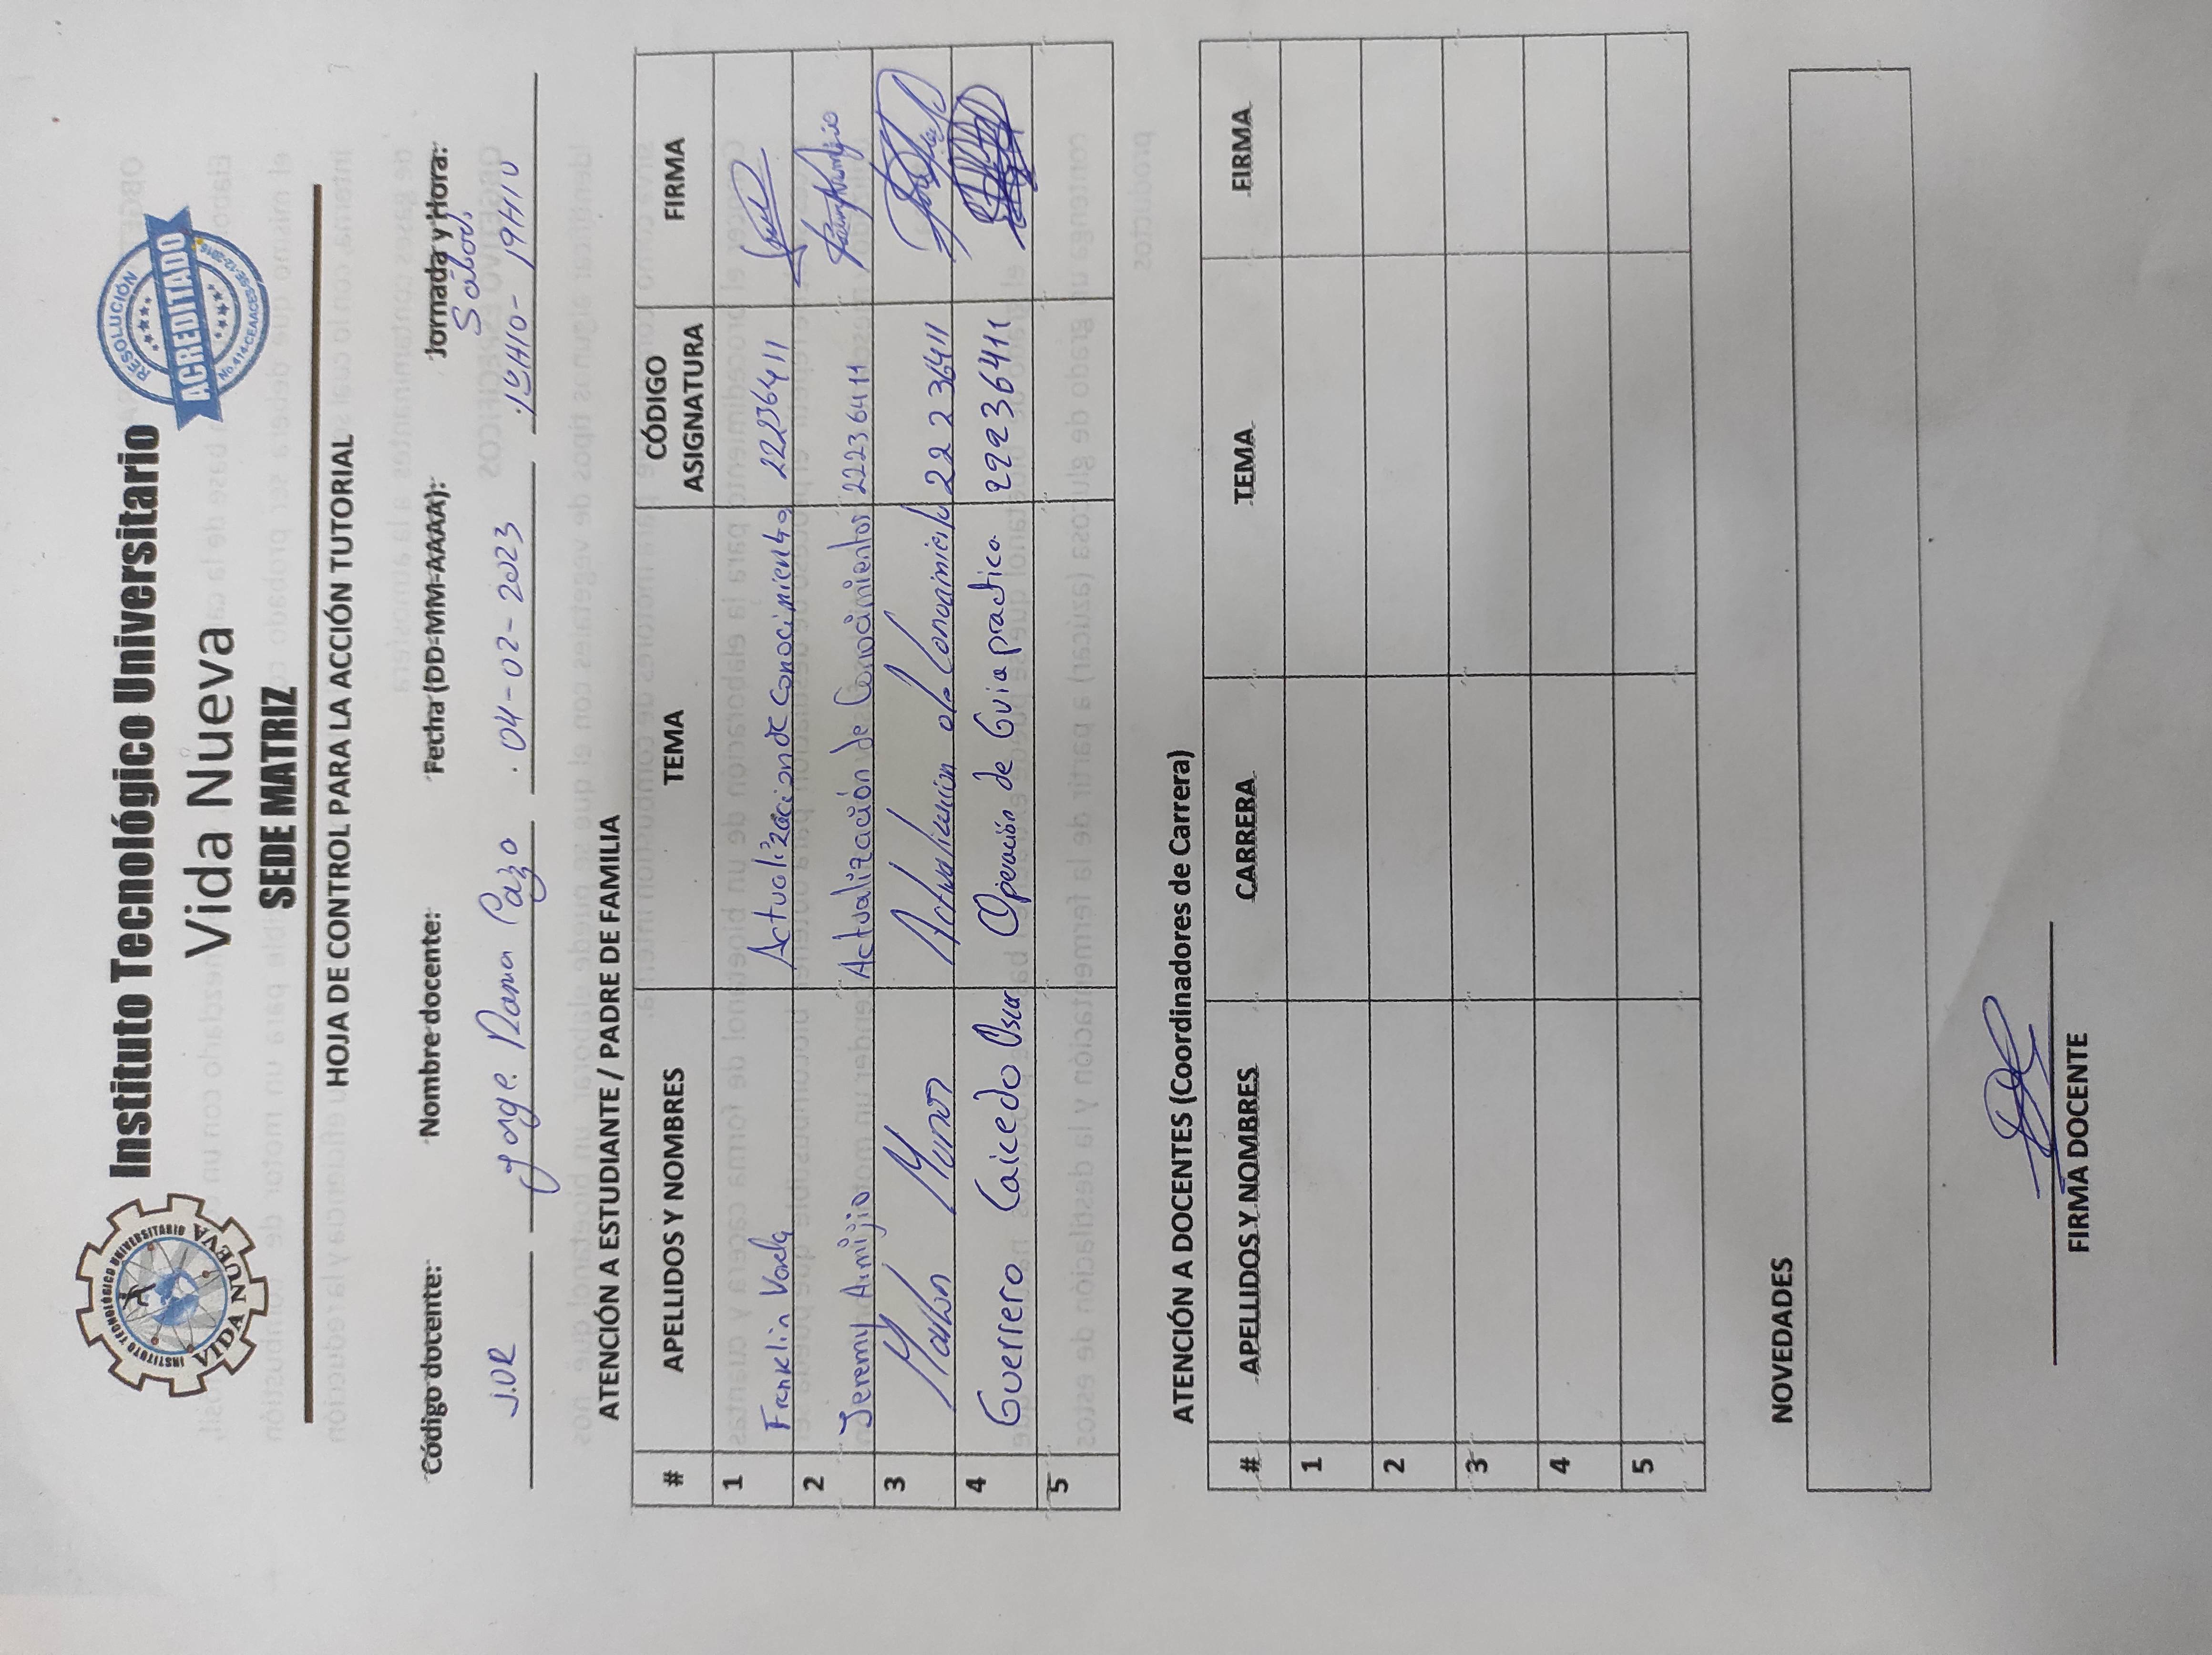 INSTITUTO TECNOLÓGICO UNIVERSITARIO
VIDA NUEVA
Instituto Tecnológico Universitario
Vida Nueva
SEDE MATRIZ
RESOLUCIÓN
ACREDITADO
HOJA DE CONTROL PARA LA ACCIÓN TUTORIAL
Código docente: Nombre docente: Fecha (DD-MM-AAAA): Jornada y Hora:
Jorge 04-02-2023 19H10
ATENCIÓN A ESTUDIANTE / PADRE DE FAMILIA
# APELLIDOS Y NOMBRES TEMA CÓDIGO ASIGNATURA FIRMA
1 Franklin Actualizacion de Conocimiento 22236411
2 Jeremy Armijio Actualización de Conocimientos 22236411
3 Marlon Munoz Actualizacion de Conocimiento 22236411
4 Guerrero Caicedo Oscar Operación de Guia practica 22236411
5
ATENCIÓN A DOCENTES (Coordinadores de Carrera)
# APELLIDOS Y NOMBRES CARRERA TEMA FIRMA
1
2
3
4
5
NOVEDADES
FIRMA DOCENTE